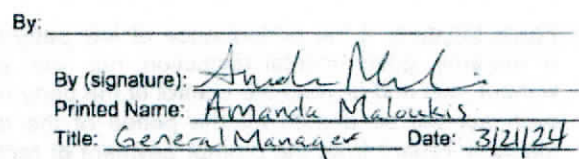 By:
By (signature): Amanda Maloukis
Printed Name: Amanda Maloukis
Title: General Manager Date: 3/21/24